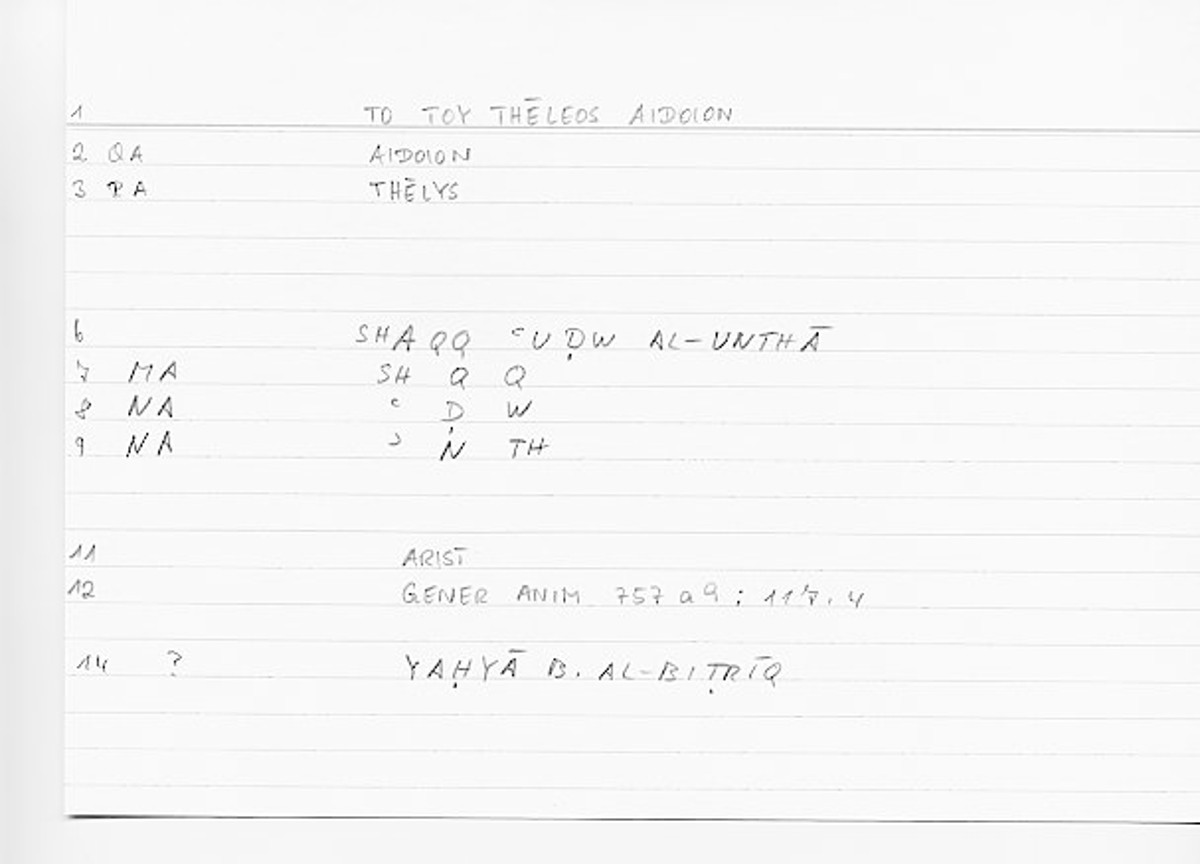 1 TO TOY THĒLEOS AIDOION
2 QA AIDOION
3 PA THĒLYS
6 SHAQQ ʿUḌW AL-UNTHĀ
7 MA SH Q Q
8 NA ʿ Ḍ W
9 NA ʾ N TH
11 ARIST
12 GENER ANIM 757 a 9 ; 117.4
14 ? YAḤYĀ B. AL-BIṬRĪQ